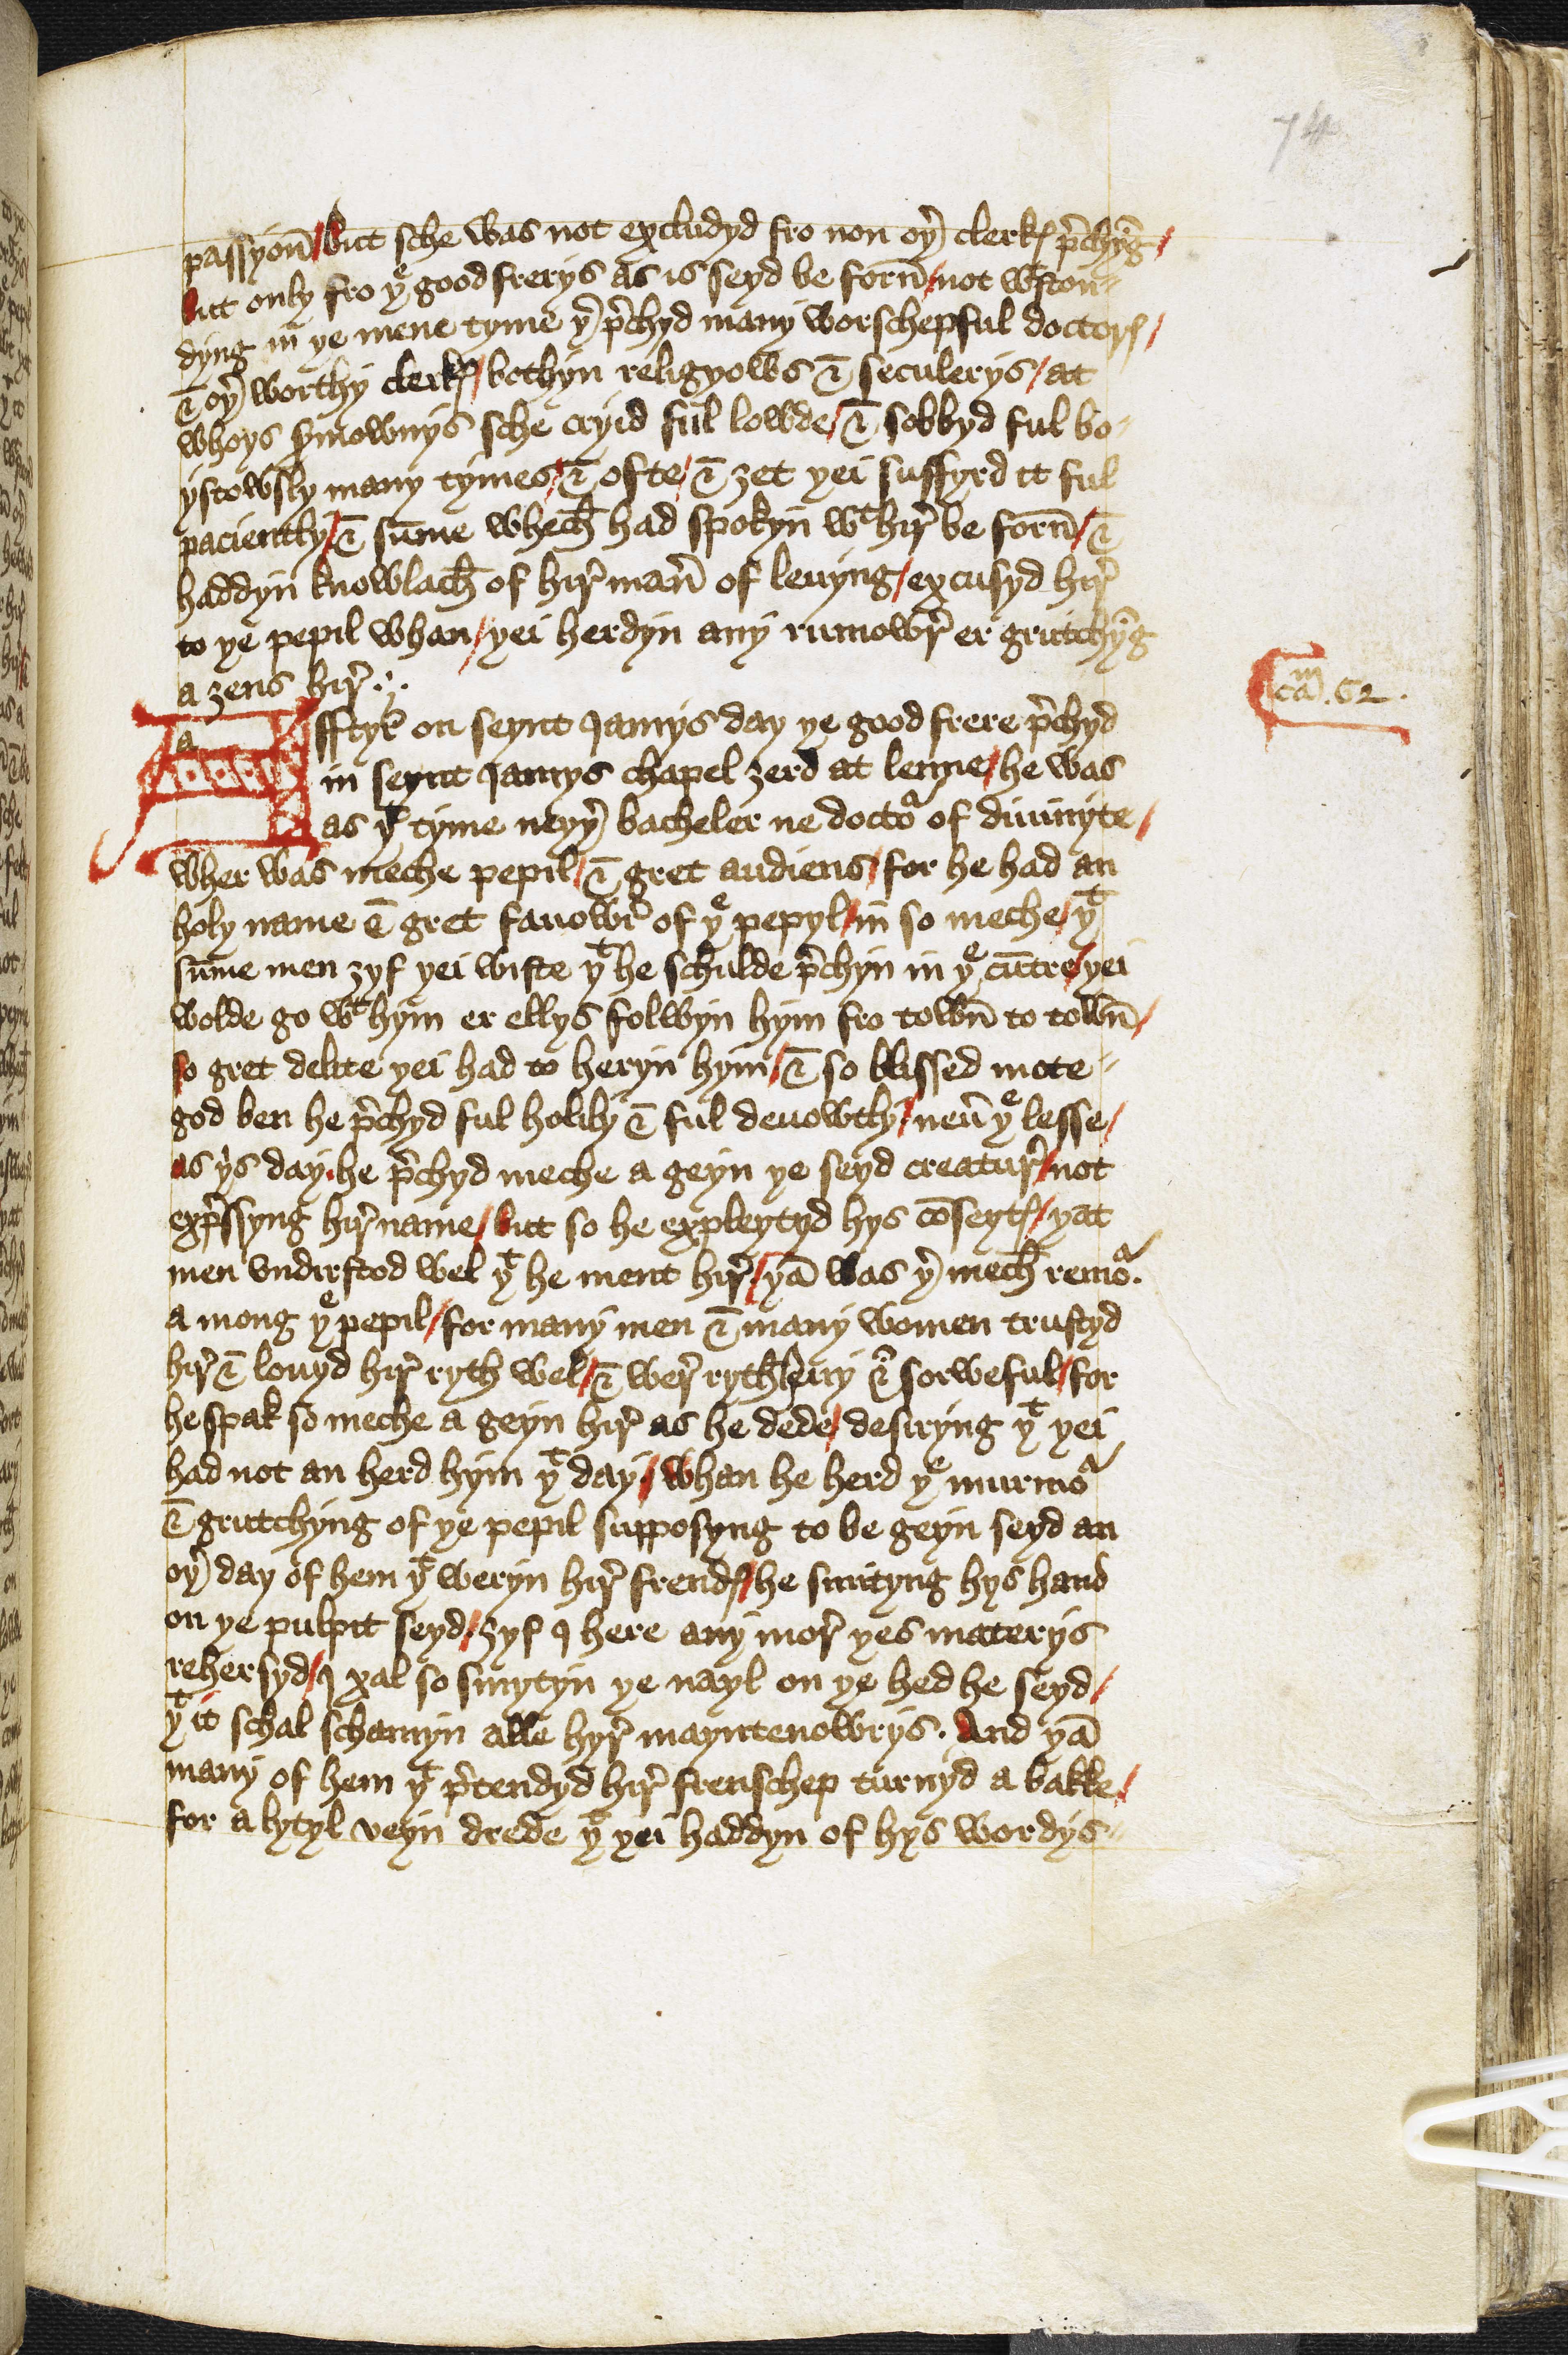 74
passyon̄ / but sche was not excludyd fro non oyr̉ clerkꝭ p̉chyn̄g /
but only fro yͤ good frerys as is seyd be forn̄ / not wᵗston-
dyng in ye mene tyme yr̉ p̉chyd many worschepful doctorꝭ /
& oyr̉ worthy clerkꝭ / bothyn religyows & seculerys / at
whoys s̉mownys sche cryid ful lowde / & sobbyd ful bo-
ystowsly many tymes / & ofte / & ȝet yei suffyrd it ful
paciently / & sūme whech had spokyn wᵗ hir̉ be forn̄ / &
haddyn knowlach of hir̉ man̉ of leuyng / excusyd hir̉
to ye pepil whan / yei herdyn any rumowr̉ er grutchyn̄g
a ȝens hir̉ .
caᵐ . 62 .
Afftyr̉ on seynt Jamys day ye good frere p̉chyd
in seynt Jamys chapel ȝerd at lenne / he was
as yᵗ tyme neyyr̉ bacheler ne doctoʳ of diuinyte /
wher was meche pepil / & gret audiens / for he had an
holy name & gret fauowr̉ of yͤ pepyl / in so meche / yᵗ
sūme men ȝyf yei wiste yᵗ he schulde p̉chyn in yͤ cūtre / yei
wolde go wᵗ hym er ellys folwyn hym fro town̄ to town̄ /
so gret delite yei had to heryn hym / & so blissed mote-
god ben he p̉chyd ful holily & ful deuowtly / neủ yͤ lesse /
as yis day he p̉chyd meche a geyn ye seyd creatur̉ / not
exp̉ssyng hir̉ name / but so he expleytyd hys cōseytꝭ / yat
men vndirstod wel yᵗ he ment hir̉ / yā was yr̉ mech remoʳ .
a mong yͤ pepil / for many men & many women trustyd
hir̉ & louyd hir̉ ryth wel / & wer̉ ryth heuy & sorweful / for
he spak so meche a geyn hir̉ as he dede / desiryng yᵗ yei
had not an herd hym yᵗ day / whan he herd yͤ murmoʳ
& grutchyng of ye pepil supposyng to be geyn seyd an
oyr̉ day of hem yᵗ weryn hir̉ frendꝭ / he smityng hys hand
on ye pulpit seyd / ȝyf I here any mor̉ yes materys
rehersyd / I xal so smytyn ye nayl on ye hed he seyd /
yᵗ it schal schamyn alle hyr̉ mayntenowrys . And yā
many of hem yᵗ p̉tendyd hir̉ frenschep turnyd a bakke /
for a lytyl veyn drede yᵗ yei haddyn of hys wordys -